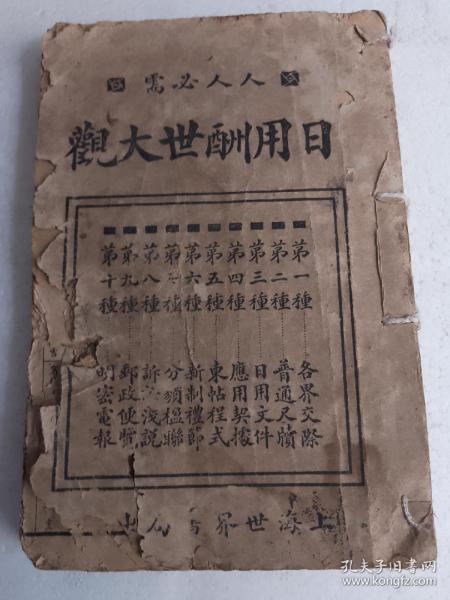 人人必需
日用酬世大觀
第一種 各界交際
第二種 普通尺牘
第三種 日用文件
第四種 應用契據
第五種 柬帖程式
第六種 新制禮節
第 種 分類楹聯
第八種 訴 淺說
第九種 郵政便覽
第十種 明密電報
上海世界書局
孔夫子旧书网
www.kongfz.com